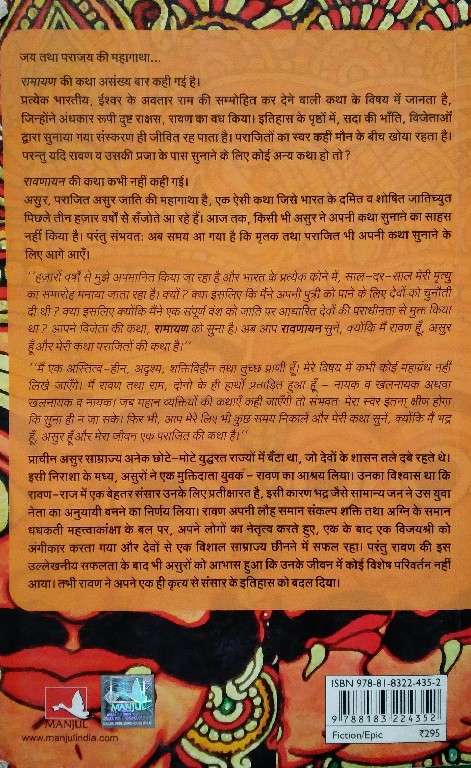 जय तथा पराजय की महागाथा...
रामायण की कथा असंख्य बार कही गई है।
प्रत्येक भारतीय, ईश्वर के अवतार राम की सम्मोहित कर देने वाली कथा के विषय में जानता है,
जिन्होंने अंधकार रूपी दुष्ट राक्षस, रावण का वध किया। इतिहास के पृष्ठों में, सदा की भाँति, विजेताओं
द्वारा सुनाया गया संस्करण ही जीवित रह पाता है। पराजितों का स्वर कहीं मौन के बीच खोया रहता है।
परन्तु यदि रावण व उसकी प्रजा के पास सुनाने के लिए कोई अन्य कथा हो तो ?
रावणायन की कथा कभी नहीं कही गई।
असुर, पराजित असुर जाति की महागाथा है, एक ऐसी कथा जिसे भारत के दमित व शोषित जातिच्युत
पिछले तीन हज़ार वर्षों से सँजोते आ रहे हैं। आज तक, किसी भी असुर ने अपनी कथा सुनाने का साहस
नहीं किया है। परंतु संभवतः अब समय आ गया है कि मृतक तथा पराजित भी अपनी कथा सुनाने के
लिए आगे आएँ।
''हज़ारों वर्षों से मुझे अपमानित किया जा रहा है और भारत के प्रत्येक कोने में, साल-दर-साल मेरी मृत्यु
का समारोह मनाया जाता रहा है। क्यों ? क्या इसलिए कि मैंने अपनी पुत्री को पाने के लिए देवों को चुनौती
दी थी ? क्या इसलिए क्योंकि मैंने एक संपूर्ण वंश को जाति पर आधारित देवों की पराधीनता से मुक्त किया
था ? आपने विजेता की कथा, रामायण को सुना है। अब आप रावणायन सुनें, क्योंकि मैं रावण हूँ, असुर
हूँ और मेरी कथा पराजितों की कथा है।''
''मैं एक अस्तित्व-हीन, अदृश्य, शक्तिविहीन तथा तुच्छ प्राणी हूँ। मेरे विषय में कभी कोई महाग्रंथ नहीं
लिखे जाएँगे। मैं रावण तथा राम, दोनों के ही हाथों प्रताड़ित हुआ हूँ – नायक व खलनायक अथवा
खलनायक व नायक। जब महान व्यक्तियों की कथाएँ कही जाएँगी तो संभवतः मेरा स्वर इतना क्षीण होगा
कि सुना ही न जा सके। फिर भी, आप मेरे लिए भी कुछ समय निकालें और मेरी कथा सुनें, क्योंकि मैं भद्र
हूँ, असुर हूँ और मेरा जीवन एक पराजित की कथा है।''
प्राचीन असुर साम्राज्य अनेक छोटे-मोटे युद्धरत राज्यों में बँटा था, जो देवों के शासन तले दबे रहते थे।
इसी निराशा के मध्य, असुरों ने एक मुक्तिदाता युवक - रावण का आश्रय लिया। उनका विश्वास था कि
रावण-राज में एक बेहतर संसार उनके लिए प्रतीक्षारत है, इसी कारण भद्र जैसे सामान्य जन ने उस युवा
नेता का अनुयायी बनने का निर्णय लिया। रावण अपनी लौह समान संकल्प शक्ति तथा अग्नि के समान
धधकती महत्त्वाकांक्षा के बल पर, अपने लोगों का नेतृत्व करते हुए, एक के बाद एक विजयश्री को
अंगीकार करता गया और देवों से एक विशाल साम्राज्य छीनने में सफल रहा। परंतु रावण की इस
उल्लेखनीय सफलता के बाद भी असुरों को आभास हुआ कि उनके जीवन में कोई विशेष परिवर्तन नहीं
आया। तभी रावण ने अपने एक ही कृत्य से संसार के इतिहास को बदल दिया।
MANJUL
www.manjulindia.com
ISBN 978-81-8322-435-2
9 788183 224352
Fiction/Epic
₹295